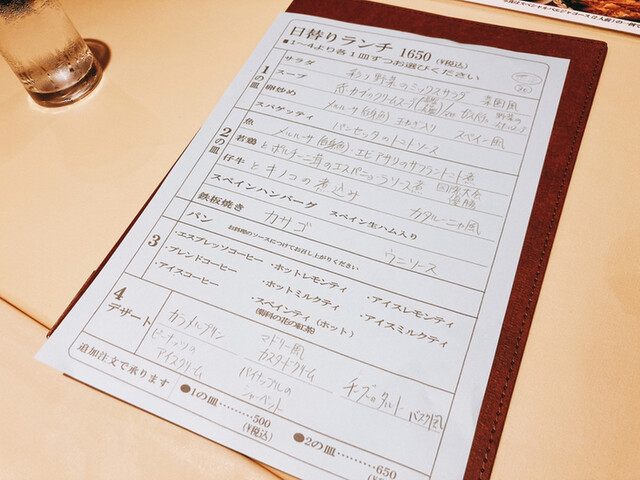 日替りランチ 1650 (¥税込)
■1〜4より各1皿ずつお選びください
1の皿
サラダ 彩り野菜のミックスサラダ 菜園風
スープ 赤カブのクリームスープ
卵炒め メルルーサ(白身魚) 玉ねぎ入り スペイン風
スパゲッティ パンセッタのトマトソース
2の皿
魚 メルルーサ(白身魚)・エビアサリのサフラントマト煮
若鶏 とポルチーニ茸のエスパニョーラソース煮 国際大会優勝
仔牛 とキノコの煮込み
スペインハンバーグ スペイン生ハム入り カタルーニャ風
鉄板焼き カサゴ ウニソース
パン お料理のソースにつけてお召し上がりください
3
・エスプレッソコーヒー ・ホットレモンティ ・アイスレモンティ
・ブレンドコーヒー ・ホットミルクティ ・アイスミルクティ
・アイスコーヒー ・スペインティ(ホット)
(菊科の花の紅茶)
4 デザート
カラメルプリン マドリー風カスタードクリーム チーズタルト バスク風
ピーナッツのアイスクリーム パイナップルのシャーベット
追加注文で承ります
●1の皿……500 (¥税込)
●2の皿……650
(¥税込)